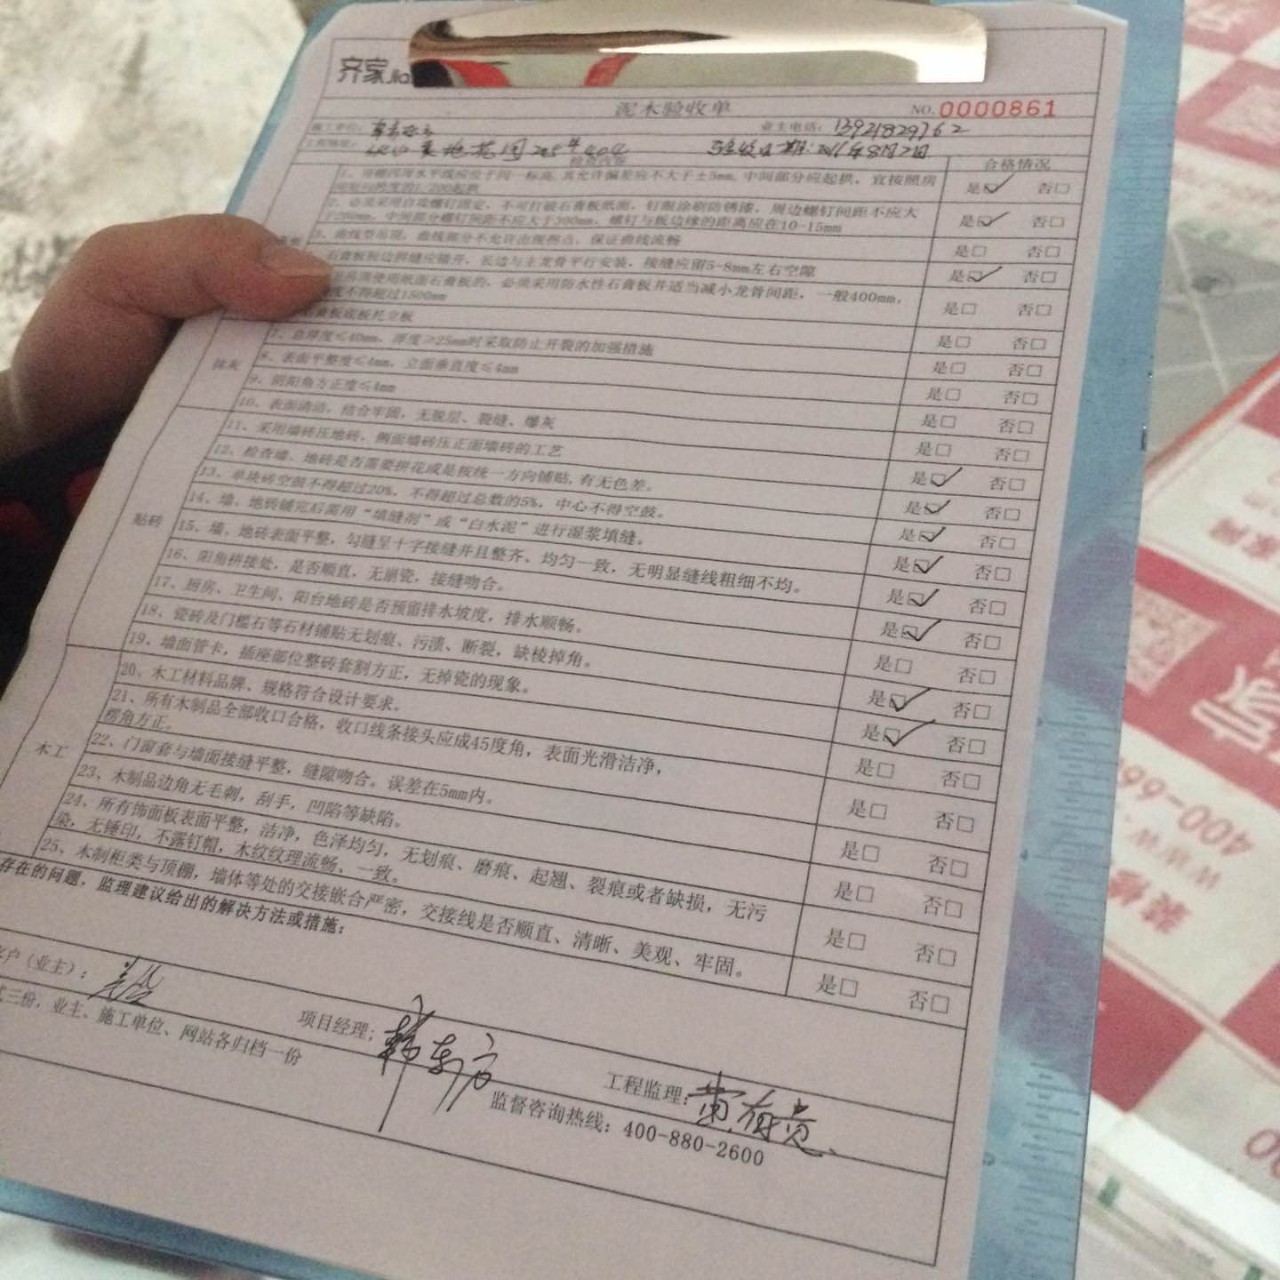 齐家
泥木验收单
NO.0000861
施工单位:
业主电话: 13921829762
工程地址:
验收日期:
合格情况
1、吊棚四周水平线应位于同一标高,其允许偏差应不大于±5mm,中间部分应起拱,宜按照房
是☑ 否□
2、必须采用自攻螺钉固定,不可打破石膏板纸面,钉眼涂刷防锈漆,周边螺钉间距不应大
于200mm,中间部分螺钉间距不应大于300mm,螺钉与板边缘的距离应在10-15mm
是☑ 否□
曲线部分不允许出现拐点,保证曲线流畅
是□ 否□
石膏板板边拼缝应错开,长边与主龙骨平行安装,接缝应留5-8mm左右空隙
是☑ 否□
使用纸面石膏板的,必须采用防水性石膏板并适当减小龙骨间距,一般400mm,
度不得超过1500mm
是□ 否□
是□ 否□
抹灰
7、总厚度≤40mm,厚度≥25mm时采取防止开裂的加强措施
是□ 否□
8、表面平整度≤4mm,立面垂直度≤4mm
是□ 否□
9、阴阳角方正度≤4mm
是□ 否□
10、表面清洁,结合牢固,无脱层、裂缝、爆灰
是□ 否□
贴砖
11、采用墙砖压地砖,侧面墙砖压正面墙砖的工艺
是☑ 否□
12、检查墙、地砖是否需要拼花或是按统一方向铺贴,有无色差。
是☑ 否□
13、单块砖空鼓不得超过20%,不得超过总数的5%,中心不得空鼓。
是☑ 否□
14、墙、地砖铺完后需用“填缝剂”或“白水泥”进行湿浆填缝。
是☑ 否□
15、墙、地砖表面平整,勾缝呈十字接缝并且整齐、均匀一致,无明显缝线粗细不均。
是☑ 否□
16、阳角拼接处,是否顺直,无崩瓷,接缝吻合。
是☑ 否□
17、厨房、卫生间、阳台地砖是否预留排水坡度,排水顺畅。
是□ 否□
18、瓷砖及门槛石等石材铺贴无划痕、污渍、断裂,缺棱掉角。
是☑ 否□
19、墙面管卡,插座部位整砖套割方正,无掉瓷的现象。
是☑ 否□
木工
20、木工材料品牌、规格符合设计要求。
是□ 否□
21、所有木制品全部收口合格,收口线条接头应成45度角,表面光滑洁净,
楞角方正。
是□ 否□
22、门窗套与墙面接缝平整,缝隙吻合。误差在5mm内。
是□ 否□
23、木制品边角无毛刺,刮手,凹陷等缺陷。
是□ 否□
24、所有饰面板表面平整,洁净,色泽均匀,无划痕、磨痕、起翘、裂痕或者缺损,无污
染,无锤印,不露钉帽,木纹纹理流畅,一致。
是□ 否□
25、木制柜类与顶棚,墙体等处的交接嵌合严密,交接线是否顺直、清晰、美观、牢固。
是□ 否□
存在的问题,监理建议给出的解决方法或措施:
客户(业主):
项目经理: 韩东方
工程监理: 黄有贵
式三份,业主、施工单位、网站各归档一份
监督咨询热线: 400-880-2600
400-66